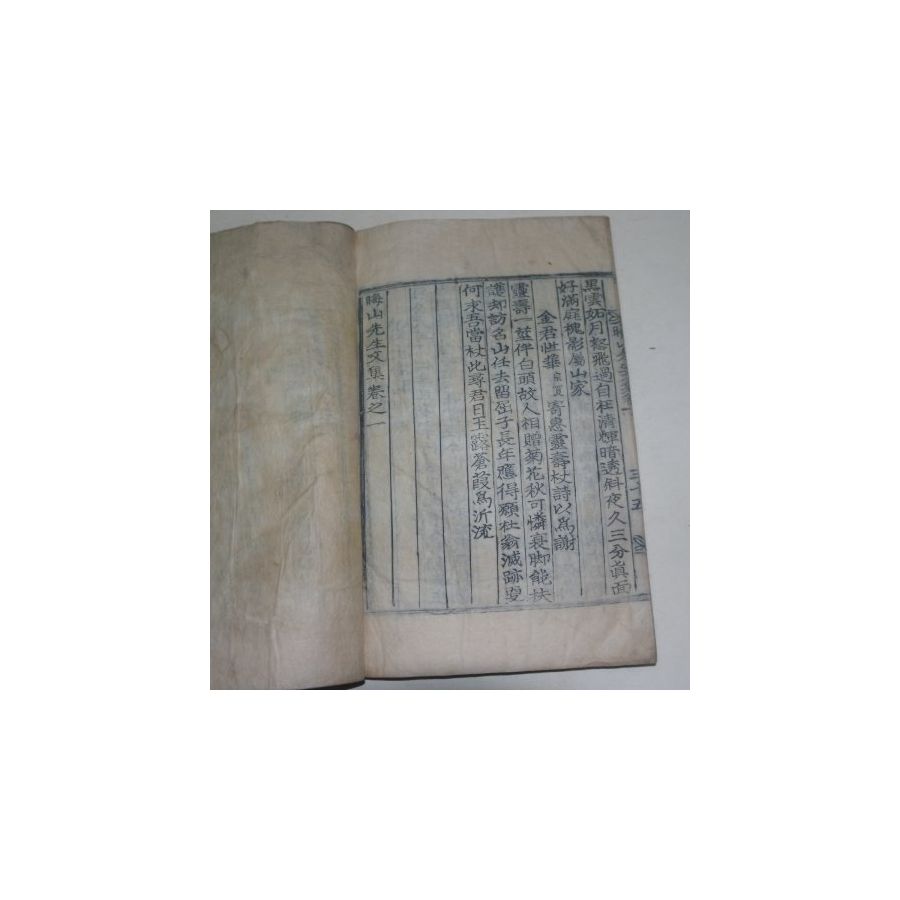 黑雲如月怒飛過自在清輝暗透斜夜久三分眞面
好滿庭槐影屬山家
金君世華寄惠靈壽杖詩以爲謝
靈壽一莖伴白頭故人相贈菊花秋可憐衰脚能扶
護却訪名山任去留在子長年應得願杜翁滅跡更
何求吾當杖此尋君日玉露蒼葭爲泝流
晦山先生文集卷之一
三十五